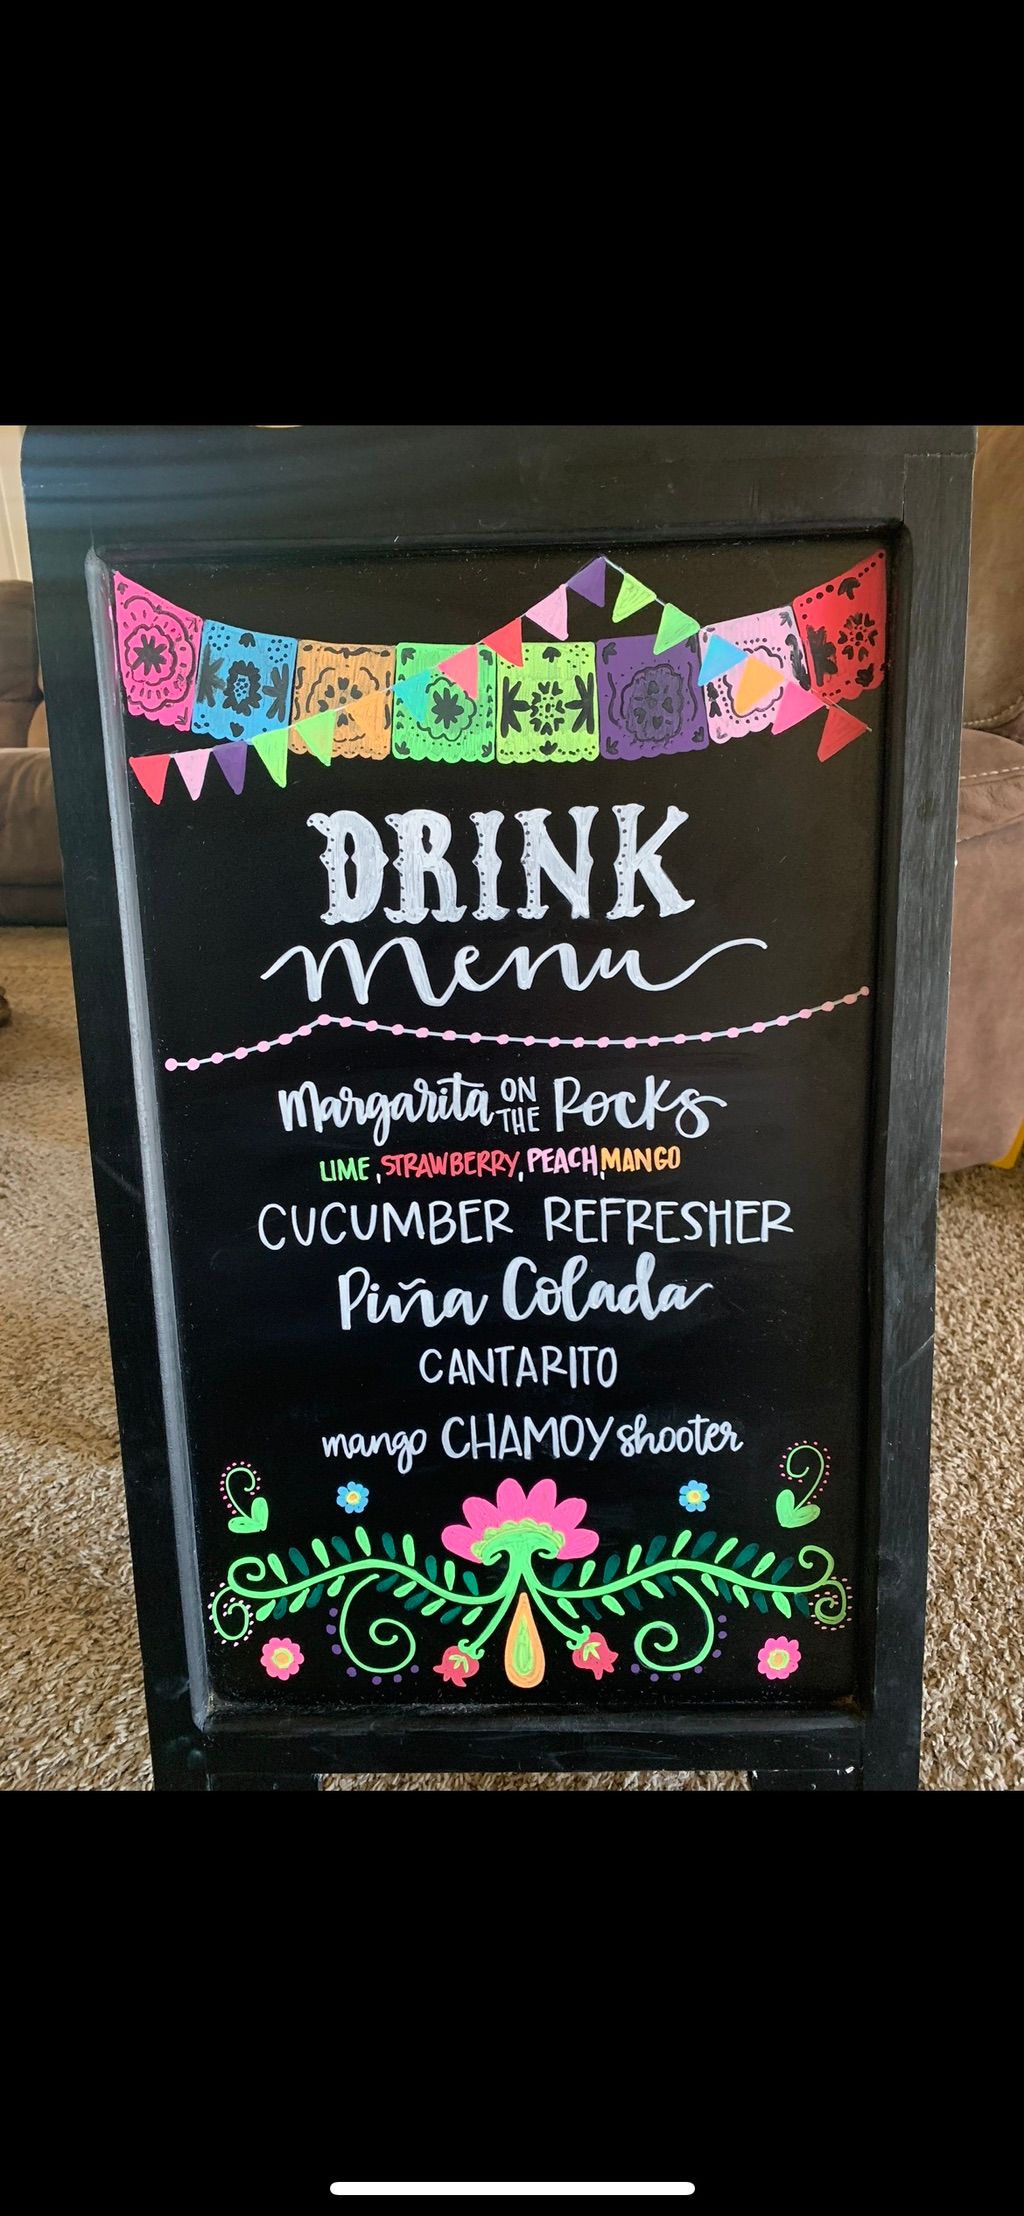 DRINK
menu
Margarita ON THE Rocks
LIME, STRAWBERRY, PEACH, MANGO
CUCUMBER REFRESHER
Piña Colada
CANTARITO
mango CHAMOY shooter